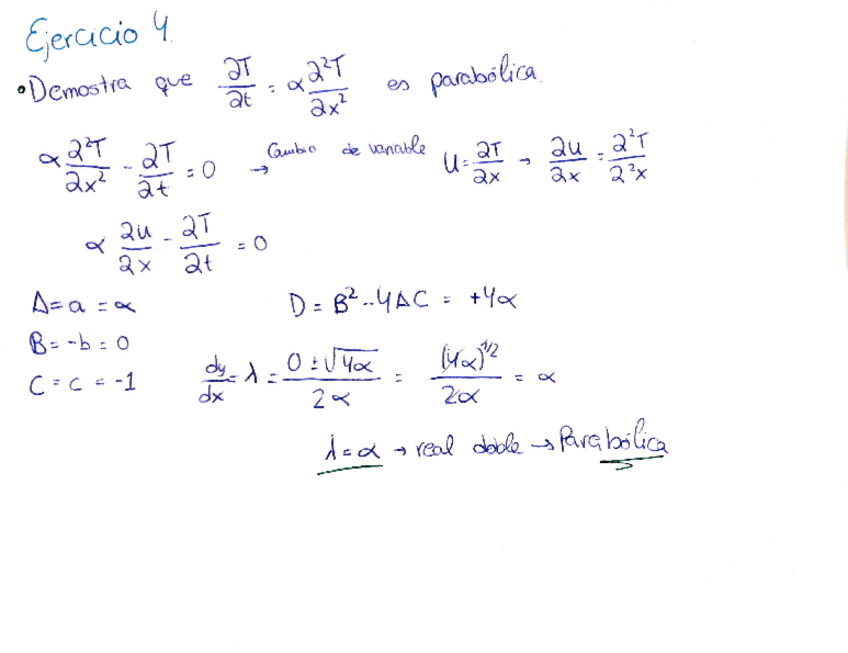 Ejercicio 4.
• Demostra que ∂T/∂t = α ∂²T/∂x² es parabólica.
α ∂²T/∂x² - ∂T/∂t = 0 → Cambio de variable U = ∂T/∂x → ∂u/∂x = ∂²T/∂²x
α ∂u/∂x - ∂T/∂t = 0
A = a = α D = B² - 4AC = +4α
B = -b = 0
C = c = -1 dy/dx = λ = (0 ± √4α)/2α = (4α)^1/2/2α = α
λ = α → real doble → Parabólica